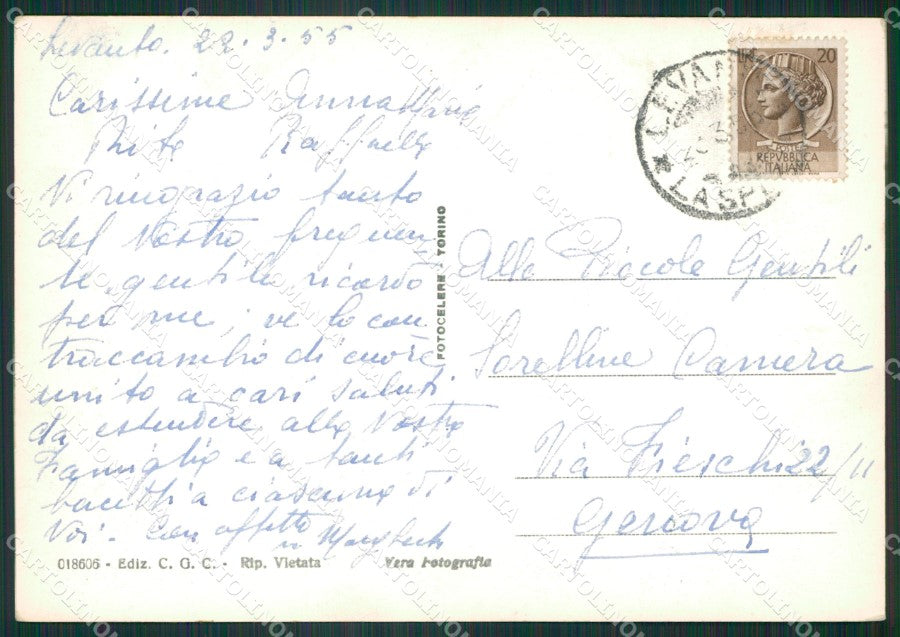 Levanto. 22.3.55
Carissime Anna Maria
Rita Raffaella
Vi ringrazio tanto
del Vostro frequen
te, gentile ricordo
per me; ve lo con
traccambio di cuore
unito a cari saluti
da estendere alla Vostra
Famiglia e a tanti
bacetti a ciascuna di
Voi. Con affetto
018606 - Ediz. C. G. C. - Rip. Vietata
Vera Fotografia
FOTOCELERE - TORINO
20
POSTE
REPVBBLICA
ITALIANA
LEVAN
LA SPE
Alle Piccole Gentili
Sorelline Camera
Via Fieschi 22/11
Genova
CARTOLINOMANIA